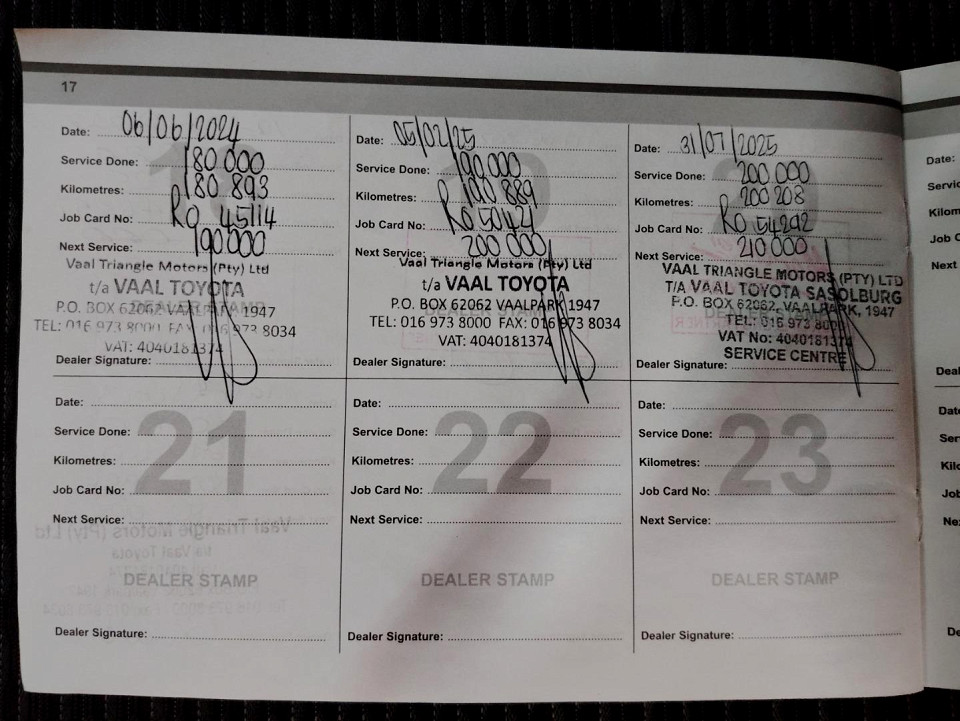 17
Date: 06/06/2024
Service Done: 180 000
Kilometres: 180 893
Job Card No: RO 45114
Next Service: 190 000
Vaal Triangle Motors (Pty) Ltd
t/a VAAL TOYOTA
P.O. BOX 62062 VAALPARK 1947
DEALER STAMP
TEL: 016 973 8000 FAX 016 973 8034
VAT: 4040181374
Dealer Signature:
Date: 05/02/25
Service Done: 190 000
Kilometres: 190 889
Job Card No: RO 50421
Next Service: 200 000
Vaal Triangle Motors (Pty) Ltd
t/a VAAL TOYOTA
P.O. BOX 62062 VAALPARK 1947
TEL: 016 973 8000 FAX: 016 973 8034
VAT: 4040181374
Dealer Signature:
Date: 31/07/2025
Service Done: 200 000
Kilometres: 200 208
Job Card No: RO 54292
Next Service: 210 000
VAAL TRIANGLE MOTORS (PTY) LTD
T/A VAAL TOYOTA SASOLBURG
P.O. BOX 62062, VAALPARK, 1947
TEL: 016 973 8000
VAT No: 4040181374
SERVICE CENTRE
Dealer Signature:
21
Date:
Service Done:
Kilometres:
Job Card No:
Next Service:
DEALER STAMP
Dealer Signature:
22
Date:
Service Done:
Kilometres:
Job Card No:
Next Service:
DEALER STAMP
Dealer Signature:
23
Date:
Service Done:
Kilometres:
Job Card No:
Next Service:
DEALER STAMP
Dealer Signature:
Date: